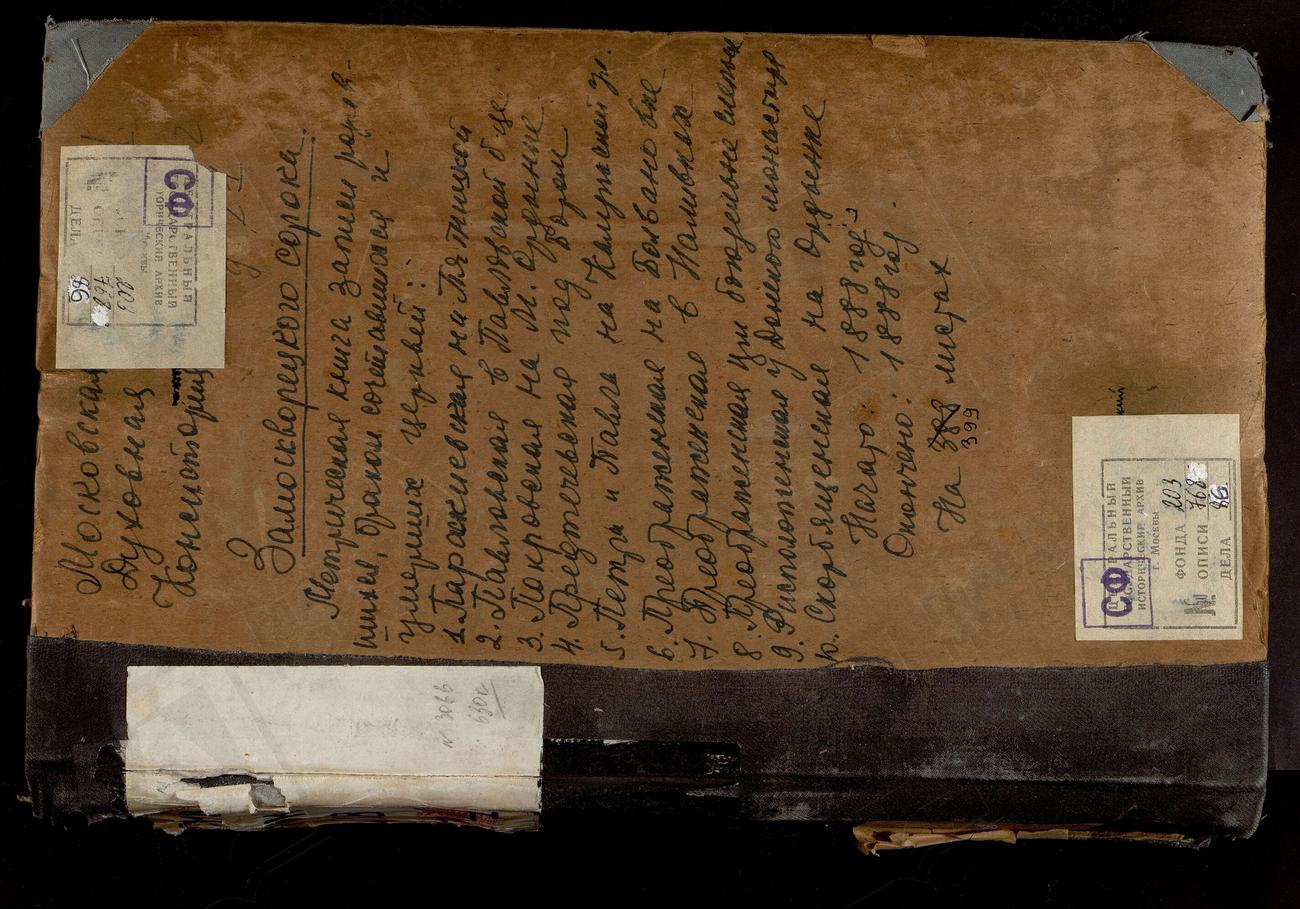 Московская
Духовная
Консистория
Замоскворецкого сорока.
Метрическая книга записей родив-
шихся, браком сочетавшихся и
умерших церквей:
1. Параскиевская на Пятницкой
2. Павловская в Павловской б-це
3. Покровская на М. Ордынке
4. Предтеченская под Бором
5. Петра и Павла на Калужской ул.
6. Преображенская на Болвановке
7. Преображенская в Наливках
8. Преображенская при богадельне
9. Ризположенская у Донского монастыря
10. Скорбященская на Ордынке
Начато: 1888 год
Окончено: 1888 год.
На 388 листах
399
СФ
ГОСУДАРСТВЕННЫЙ
ИСТОРИЧЕСКИЙ АРХИВ
г. Москвы
№
ФОНДА 203
ОПИСИ 768
ДЕЛА 86
СФ
РАЛЬНЫЙ
АРСТВЕННЫЙ
ТОРИЧЕСКИЙ АРХИВ
203
768
ДЕЛА 86
N 3066
630к